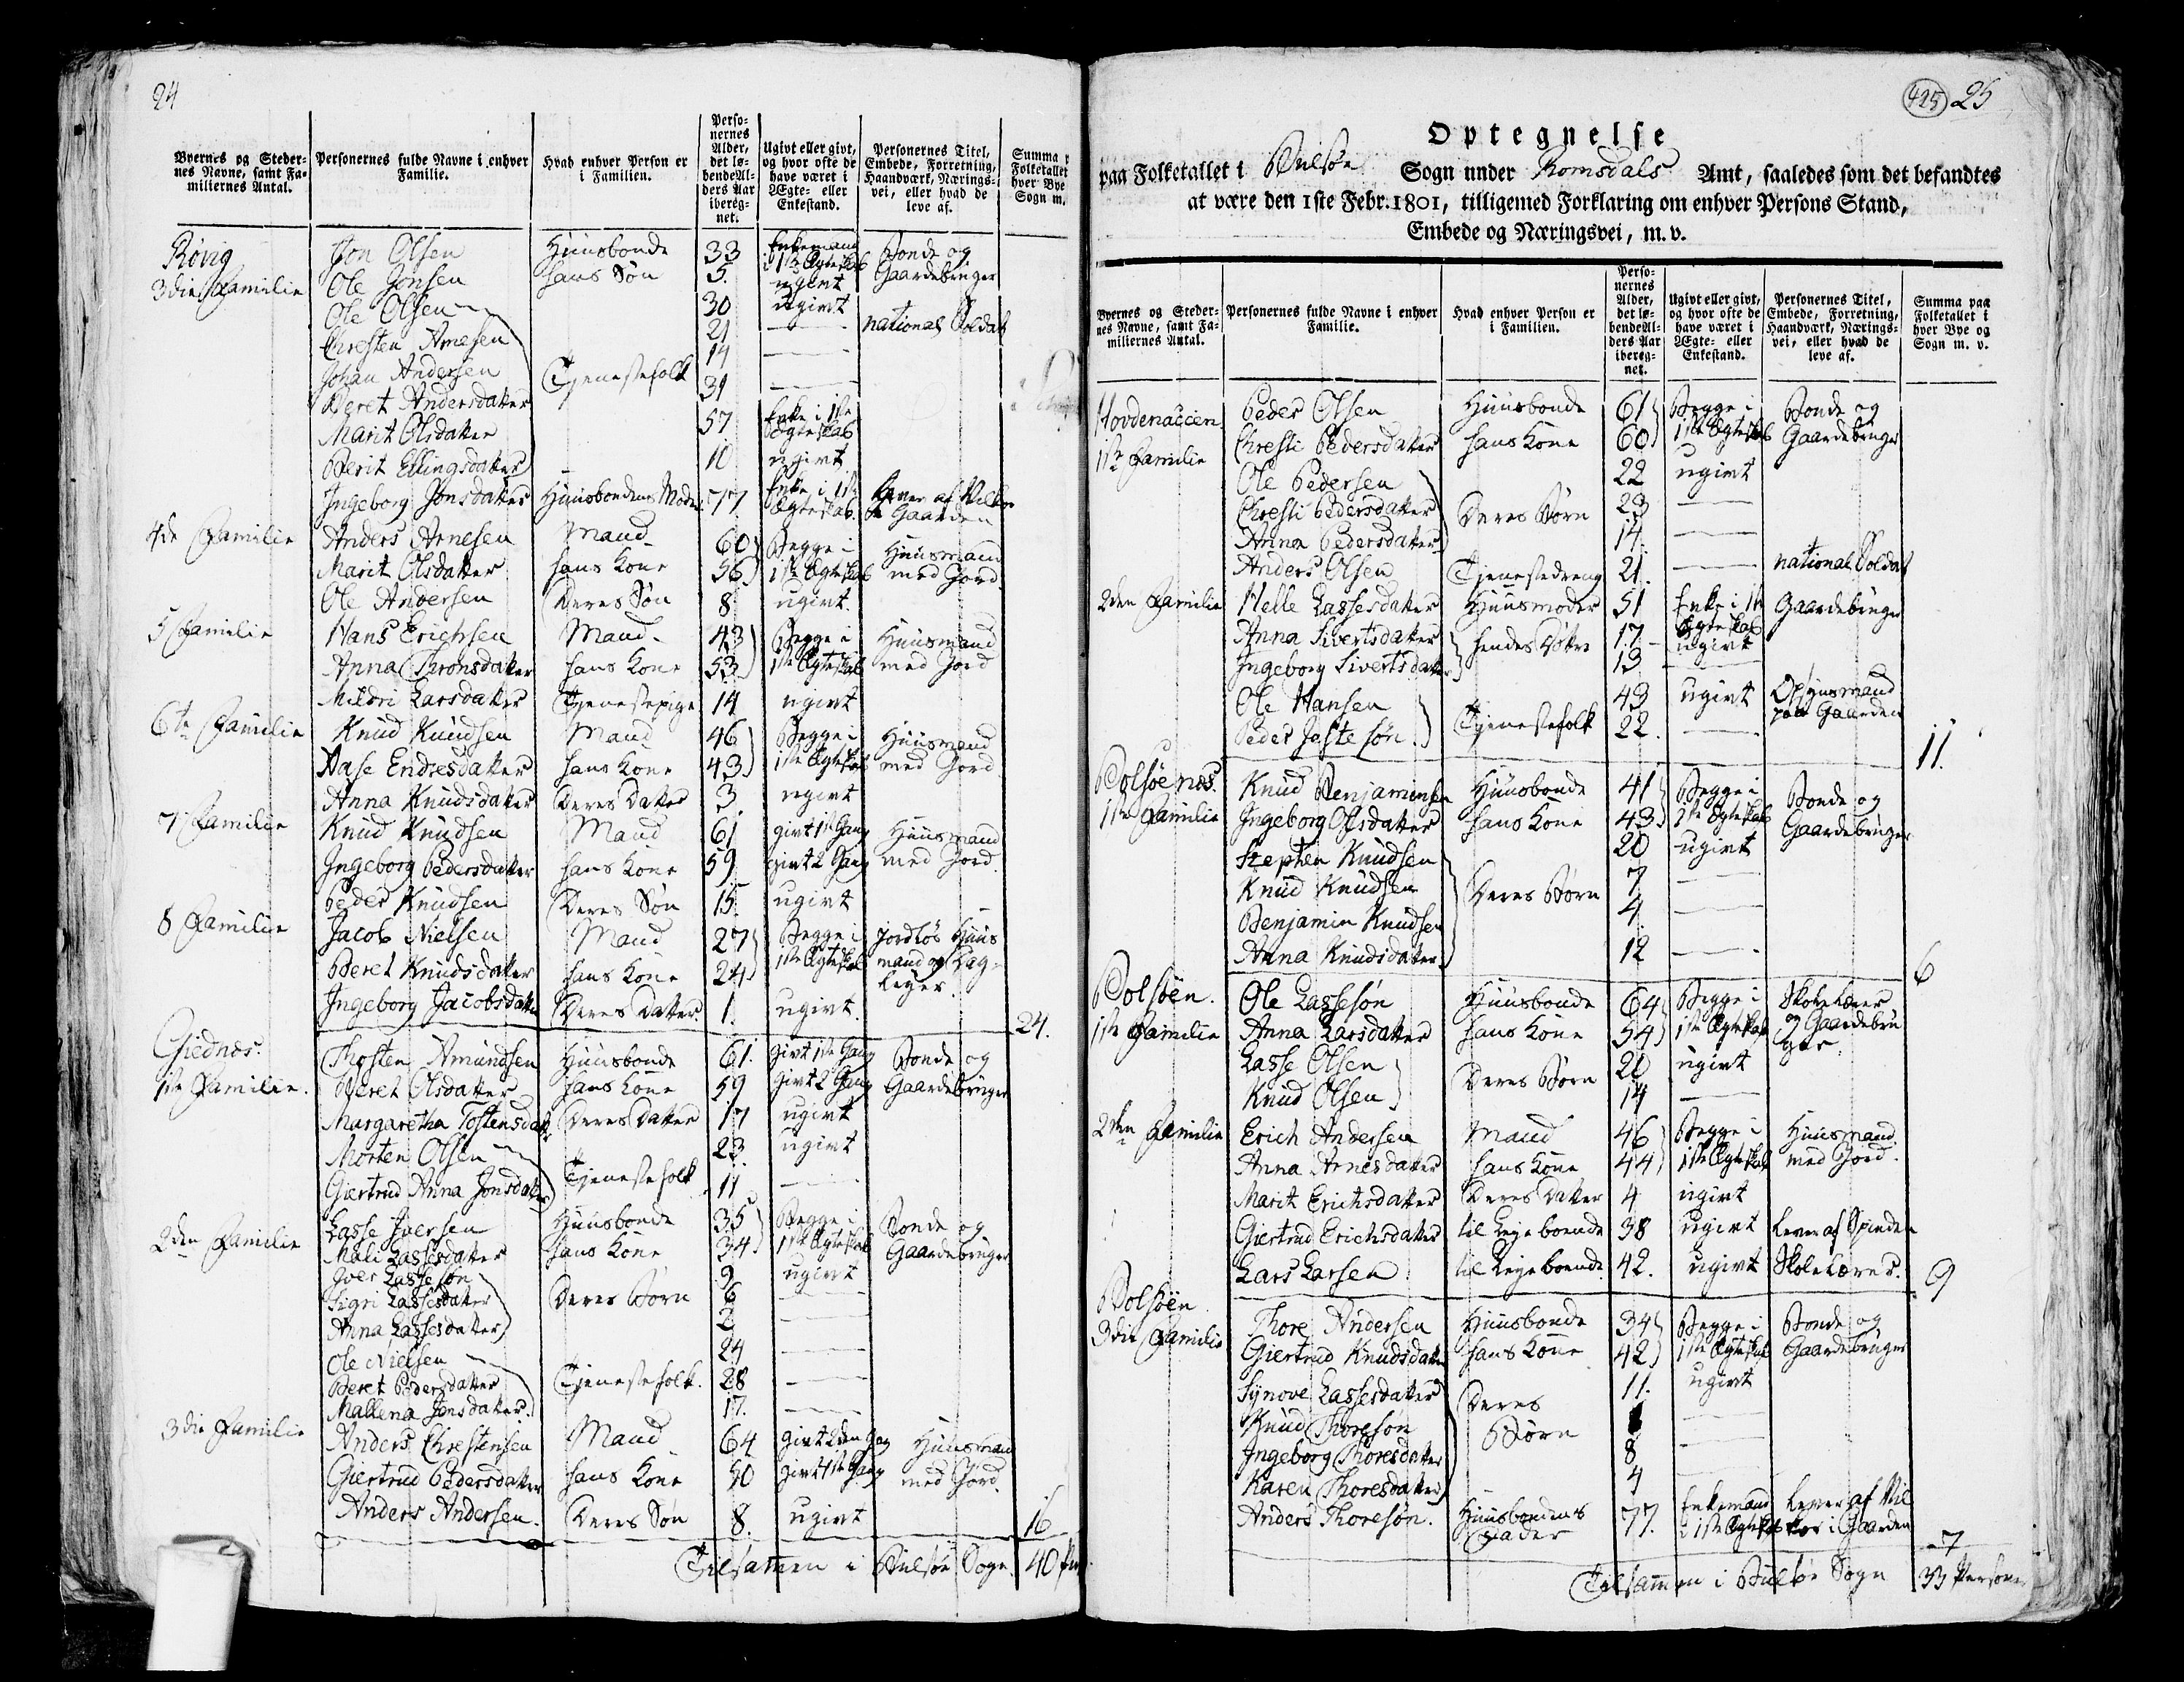 24
Byernes og Steder-nes Navne, samt Fa-miliernes Antal. Personernes fulde Navne i enhver Familie. Hvad enhver Person er i Familien. Perso-nernes Alder, det lø-bende Al-ders Aar ibereg-net. Ugivt eller givt, og hvor ofte de have været i Ægte- eller Enkestand. Personernes Titel, Embede, Forretning, Haandværk, Nærings-vei, eller hvad de leve af. Summa Folketallet hver Bye Sogn m.
Røvig Jon Olsen Huusbonde 33 Enkemand i 1ste Ægteskab Bonde og Gaardebruger
3die Familie Ole Jonsen hans Søn 5. ugivt
Ole Olsen 30 ugivt
Chresten Arnesen 21 — national Soldat
Johan Andersen 14 —
Beret Andersdatter Tjenestefolk 31 —
Marit Olsdatter 57 Enke i 1ste Ægteskab
Berit Ellingsdatter 10 ugivt
Ingeborg Jonsdatter Huusbondens Moder 77 Enke i 1ste Ægteskab Gaarden
4de Familie Anders Arnesen Mand 60 Begge i Huusmand
Marit Olsdatter hans Kone 56 1ste Ægteskab med Jord
Ole Andersen Deres Søn 8 ugivt.
5 Familie Hans Erichsen Mand 43 Begge i Huusmand
Anna Thronsdatter hans Kone 53 1ste Ægteskab med Jord
Mildri Larsdatter Tjenestepige 14 ugivt
6te Familie Knud Knudsen Mand 46 Begge i Huusmand
Aase Endresdatter hans Kone 43 1ste Ægteskab med Jord
Anna Knudsdatter Deres Datter 3 ugivt
7 Familie Knud Knudsen Mand 61 givt 1ste Gang Huusmand
Ingeborg Pedersdatter hans Kone 59 givt 2 Gang med Jord.
Peder Knudsen Deres Søn 15 ugivt
8 Familie Jacob Nielsen Mand 27 Begge i Jordløs Huus
Beret Knudsdatter hans Kone 24 1ste Ægteskab mand og Dag-
Ingeborg Jacobsdatter Deres Datter 1. ugivt. lejer.
24.
Giednæs. Thosten Amundsen Huusbonde 61. givt 1ste Gang Bonde og
1ste Familie. Beret Olsdatter hans Kone 59 givt 2 Gang Gaardebruger
Margaretha Tostensdatter Deres Datter 17 ugivt
Morten Olsen 23 ugivt
Giertrud Anna Jonsdatter Tjenestefolk 11 —
2den Familie Lasse Iversen Huusbonde 35 Begge i Bonde og
Mali Lassesdatter hans Kone 34 1ste Ægteskab Gaardebruger
Iver Lassesøn 9 ugivt
Sigri Lassesdatter Deres Børn 6 —
Anna Lassesdatter 2 —
Ole Nielsen 24 —
Beret Pedersdatter Tjenestefolk. 28 —
Mallena Jonsdatter. 17. —
3die Familie Anders Chrestensen Mand 64 givt 2den Gang Huusmand
Giertrud Pedersdatter hans Kone 50 givt 1ste Gang med Jord.
Anders Andersen. Deres Søn 8. ugivt
16
Tilsammen i Bulsøe Sogn 40
425 25
Optegnelse
paa Folketallet i Bulsøe Sogn under Romsdals Amt, saaledes som det befandtes
at være den 1ste Febr. 1801, tilligemed Forklaring om enhver Persons Stand,
Embede og Næringsvei, m. v.
Byernes og Steder-nes Navne, samt Fa-miliernes Antal. Personernes fulde Navne i enhver Familie. Hvad enhver Person er i Familien. Perso-nernes Alder, det lø-bende Al-ders Aar ibereg-net. Ugivt eller givt, og hvor ofte de have været i Ægte- eller Enkestand. Personernes Titel, Embede, Forretning, Haandværk, Nærings-vei, eller hvad de leve af. Summa paa Folketallet i hver Bye og Sogn m. v.
Hovdenacken Peder Olsen Huusbonde 61 Begge i Bonde og
1ste Familie Chresti Pedersdatter hans Kone 60 1ste Ægteskab Gaardebruger
Ole Pedersen 22 ugivt
Chresti Pedersdatter Deres Børn 23 —
Anna Pedersdatter 14. —
Anders Olsen Tjenestedreng 21. — national Soldat
2den Familie Helle Lassesdatter Huusmoder 51 Enke i 1ste Ægteskab Gaardebruger
Anna Sivertsdatter hendes Døttre 17 ugivt
Ingeborg Sivertsdatter 13 —
Ole Hansen Tjenestefolk 43 ugivt Opsynsmand paa Gaarden
Peder Jostesøn. 22. —
11.
Bolsøenæs. Knud Benjaminsen Huusbonde 41 Begge i Bonde og
1ste Familie Ingeborg Olsdatter hans Kone 43 1ste Ægteskab Gaardebruger
Stephen Knudsen 20 ugivt
Knud Knudsen Deres Børn 7 —
Benjamin Knudsen 4 —
Anna Knudsdatter 12 —
6
Bolsøen. Ole Lassesøn Huusbonde 64 Begge i Skolelærer
1ste Familie Anna Larsdatter hans Kone 54 1ste Ægteskab og Gaardebru
Lasse Olsen Deres Børn 20 ugivt ger.
Knud Olsen 14 —
2den Familie Erich Andersen Mand 46 Begge i Huusmand
Anna Arnesdatter hans Kone 44 1ste Ægteskab med Jord.
Marit Erichsdatter Deres Datter 4 ugivt
Giertrud Erichsdatter til Leje boende 38 ugivt Lever af Spinden
Lars Larsen til Leje boende 42. ugivt Skolelærer.
9
Bolsøen Thore Andersen Huusbonde 34 Begge i Bonde og
3die Familie Giertrud Knudsdatter hans Kone 42 1ste Ægteskab Gaardebruger
Synove Lassesdatter Deres 11. ugivt
Knud Thoresøn Børn —
Ingeborg Thoresdatter 8 —
Karen Thoresdatter 4
Anders Thoresøn. Huusbondens Fader 77. Enkemand i 1ste Ægteskab Lever af Vil kor i Gaarden
7
Tilsammen i Bulsøe Sogn 33 Personer